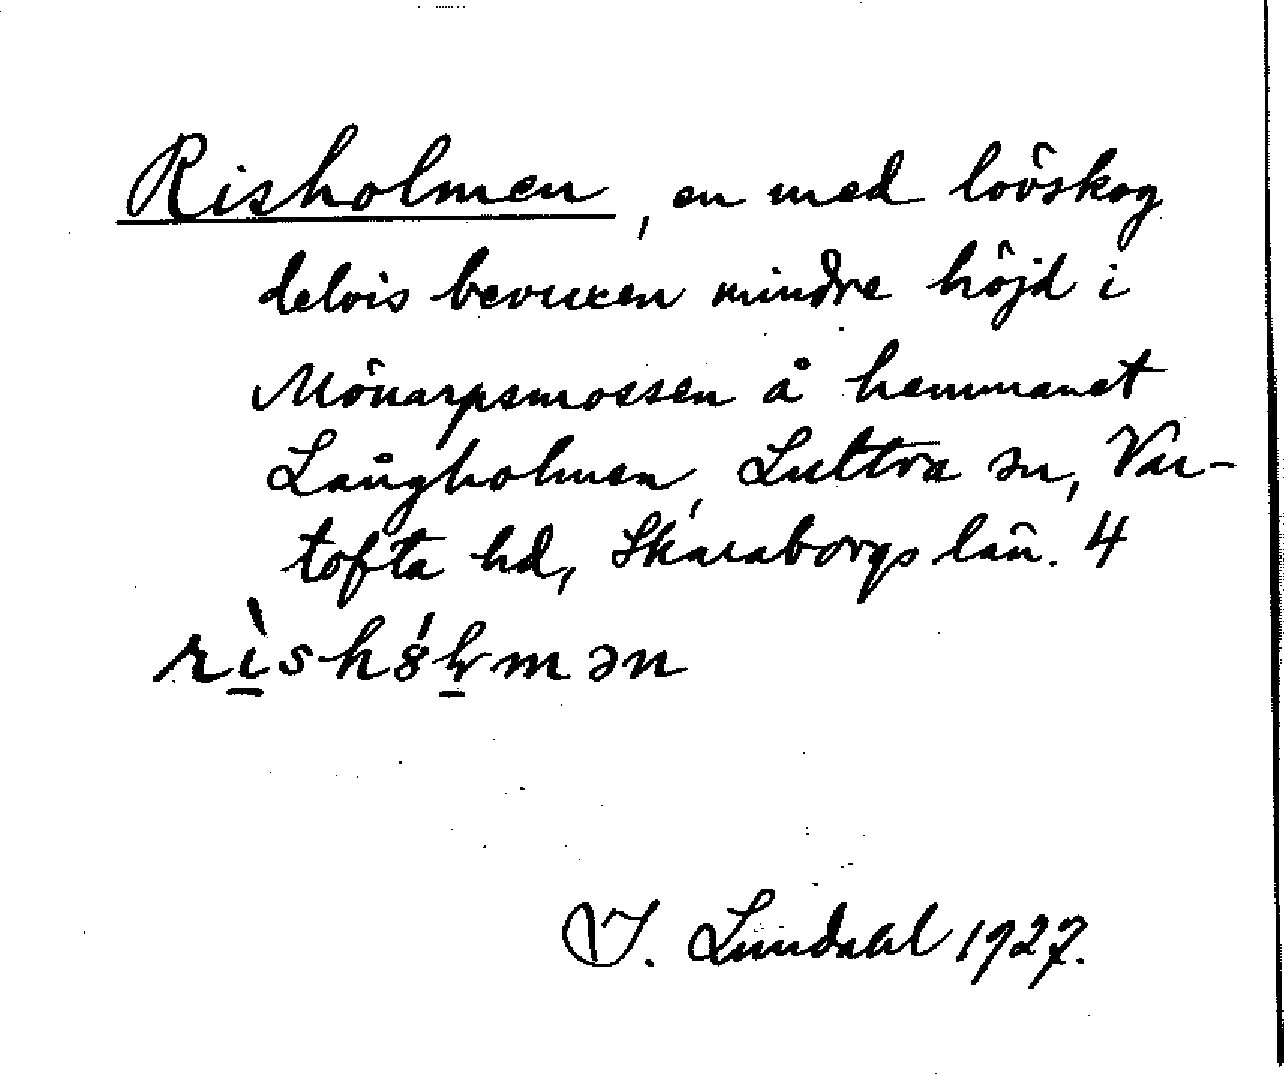 Risholmen, en med lövskog
delvis bevuxen mindre höjd i
Mönarpsmossen å hemmanet
Långholmen, Luttra sn, Var-
tofta hd, Skaraborgs län. 4
rìshólmən
I. Lundahl 1927.